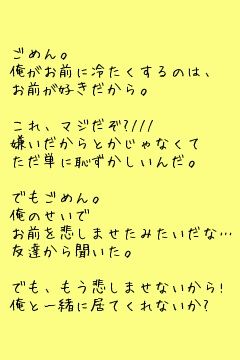 ごめん。
俺がお前に冷たくするのは、
お前が好きだから。
これ、マジだぞ?///
嫌いだからとかじゃなくて
ただ単に恥ずかしいんだ。
でもごめん。
俺のせいで
お前を悲しませたみたいだな…
友達から聞いた。
でも、もう悲しませないから!
俺と一緒に居てくれないか?